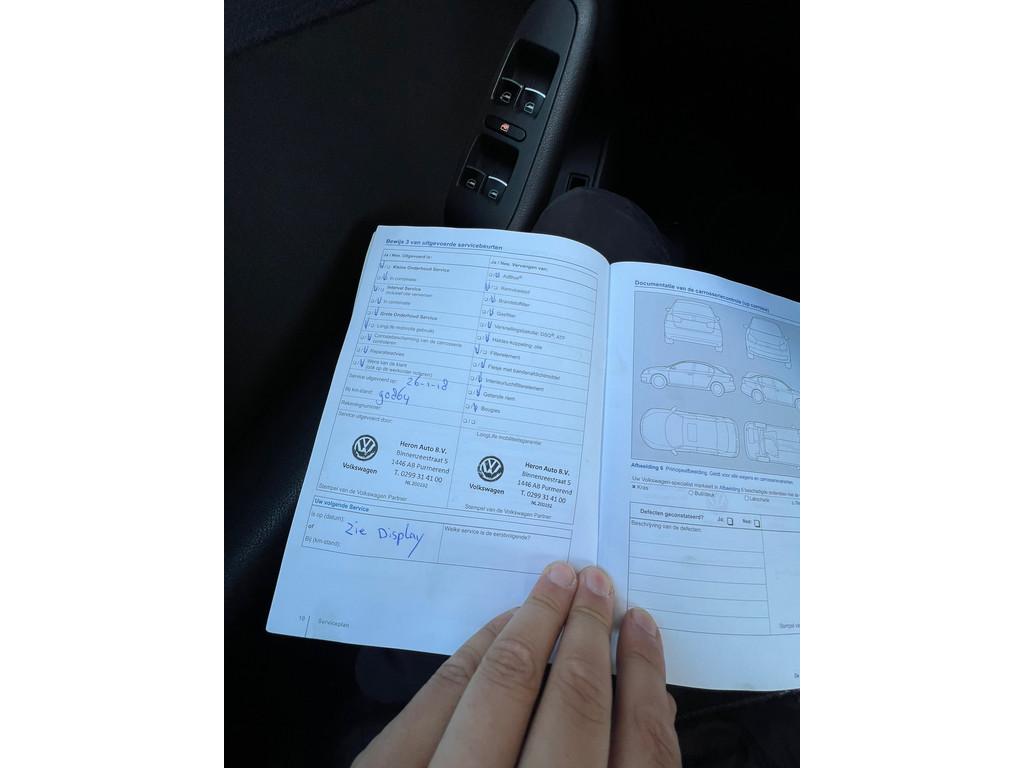 Bewijs 3 van uitgevoerde servicebeurten
Ja / Nee, Uitgevoerd is:
Kleine Onderhoud Service
In combinatie
Interval Service
inclusief olie verversen
In combinatie
Grote Onderhoud Service
LongLife motorolie gebruikt
Carrosseriebescherming van de carrosserie
controleren
Reparatieadvies
Wens van de klant
(ook op de werkorder noteren)
Service uitgevoerd op: 26-1-18
Bij km-stand:
Rekeningnummer:
Service uitgevoerd door:
Volkswagen
Heron Auto B.V.
Binnenzeestraat 5
1446 AB Purmerend
T. 0299 31 41 00
NL 200192
Stempel van de Volkswagen Partner
Ja / Nee, Vervangen van:
AdBlue®
Remvloeistof
Brandstoffilter
Gasfilter
Versnellingsbakolie: DSG®, ATP
Haldex-koppeling: olie
Filterelement
Flesje met bandenafdichtmiddel
Interieurluchtfilterelement
Getande riem
Bougies
LongLife mobiliteitsgarantie:
Volkswagen
Heron Auto B.V.
Binnenzeestraat 5
1446 AB Purmerend
T. 0299 31 41 00
NL 200192
Stempel van de Volkswagen Partner
Uw volgende Service
Is op (datum):
of
Bij (km-stand):
Zie Display
Welke service is de eerstvolgende?
10
Serviceplan
Documentatie van de carrosseriecontrole (op corrosie)
Afbeelding 6 Principeafbeelding. Geldt voor alle wagens en carrosserievarianten.
Uw Volkswagen-specialist markeert in Afbeelding 6
Kras
Buil/deuk
Lakschade
Defecten geconstateerd? Ja: Nee:
Beschrijving van de defecten:
Stempel